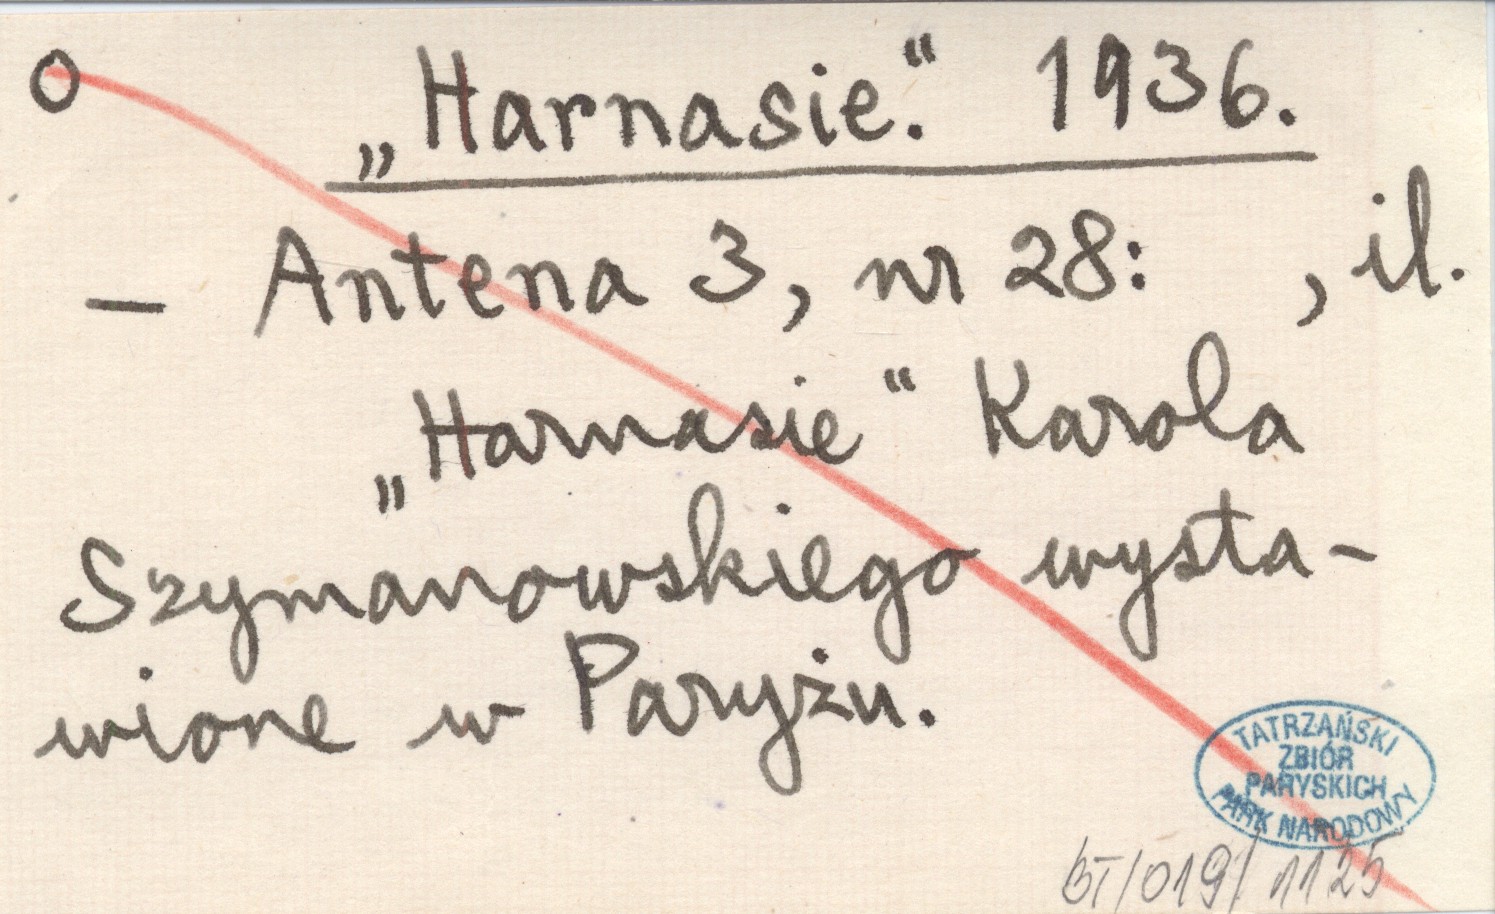 O „Harnasie.“ 1936.
– Antena 3, nr 28: , il.
„Harnasie“ Karola
Szymanowskiego wysta-
wione w Paryżu.
TATRZAŃSKI
ZBIÓR
PARYSKICH
PARK NARODOWY
BT/019/1125